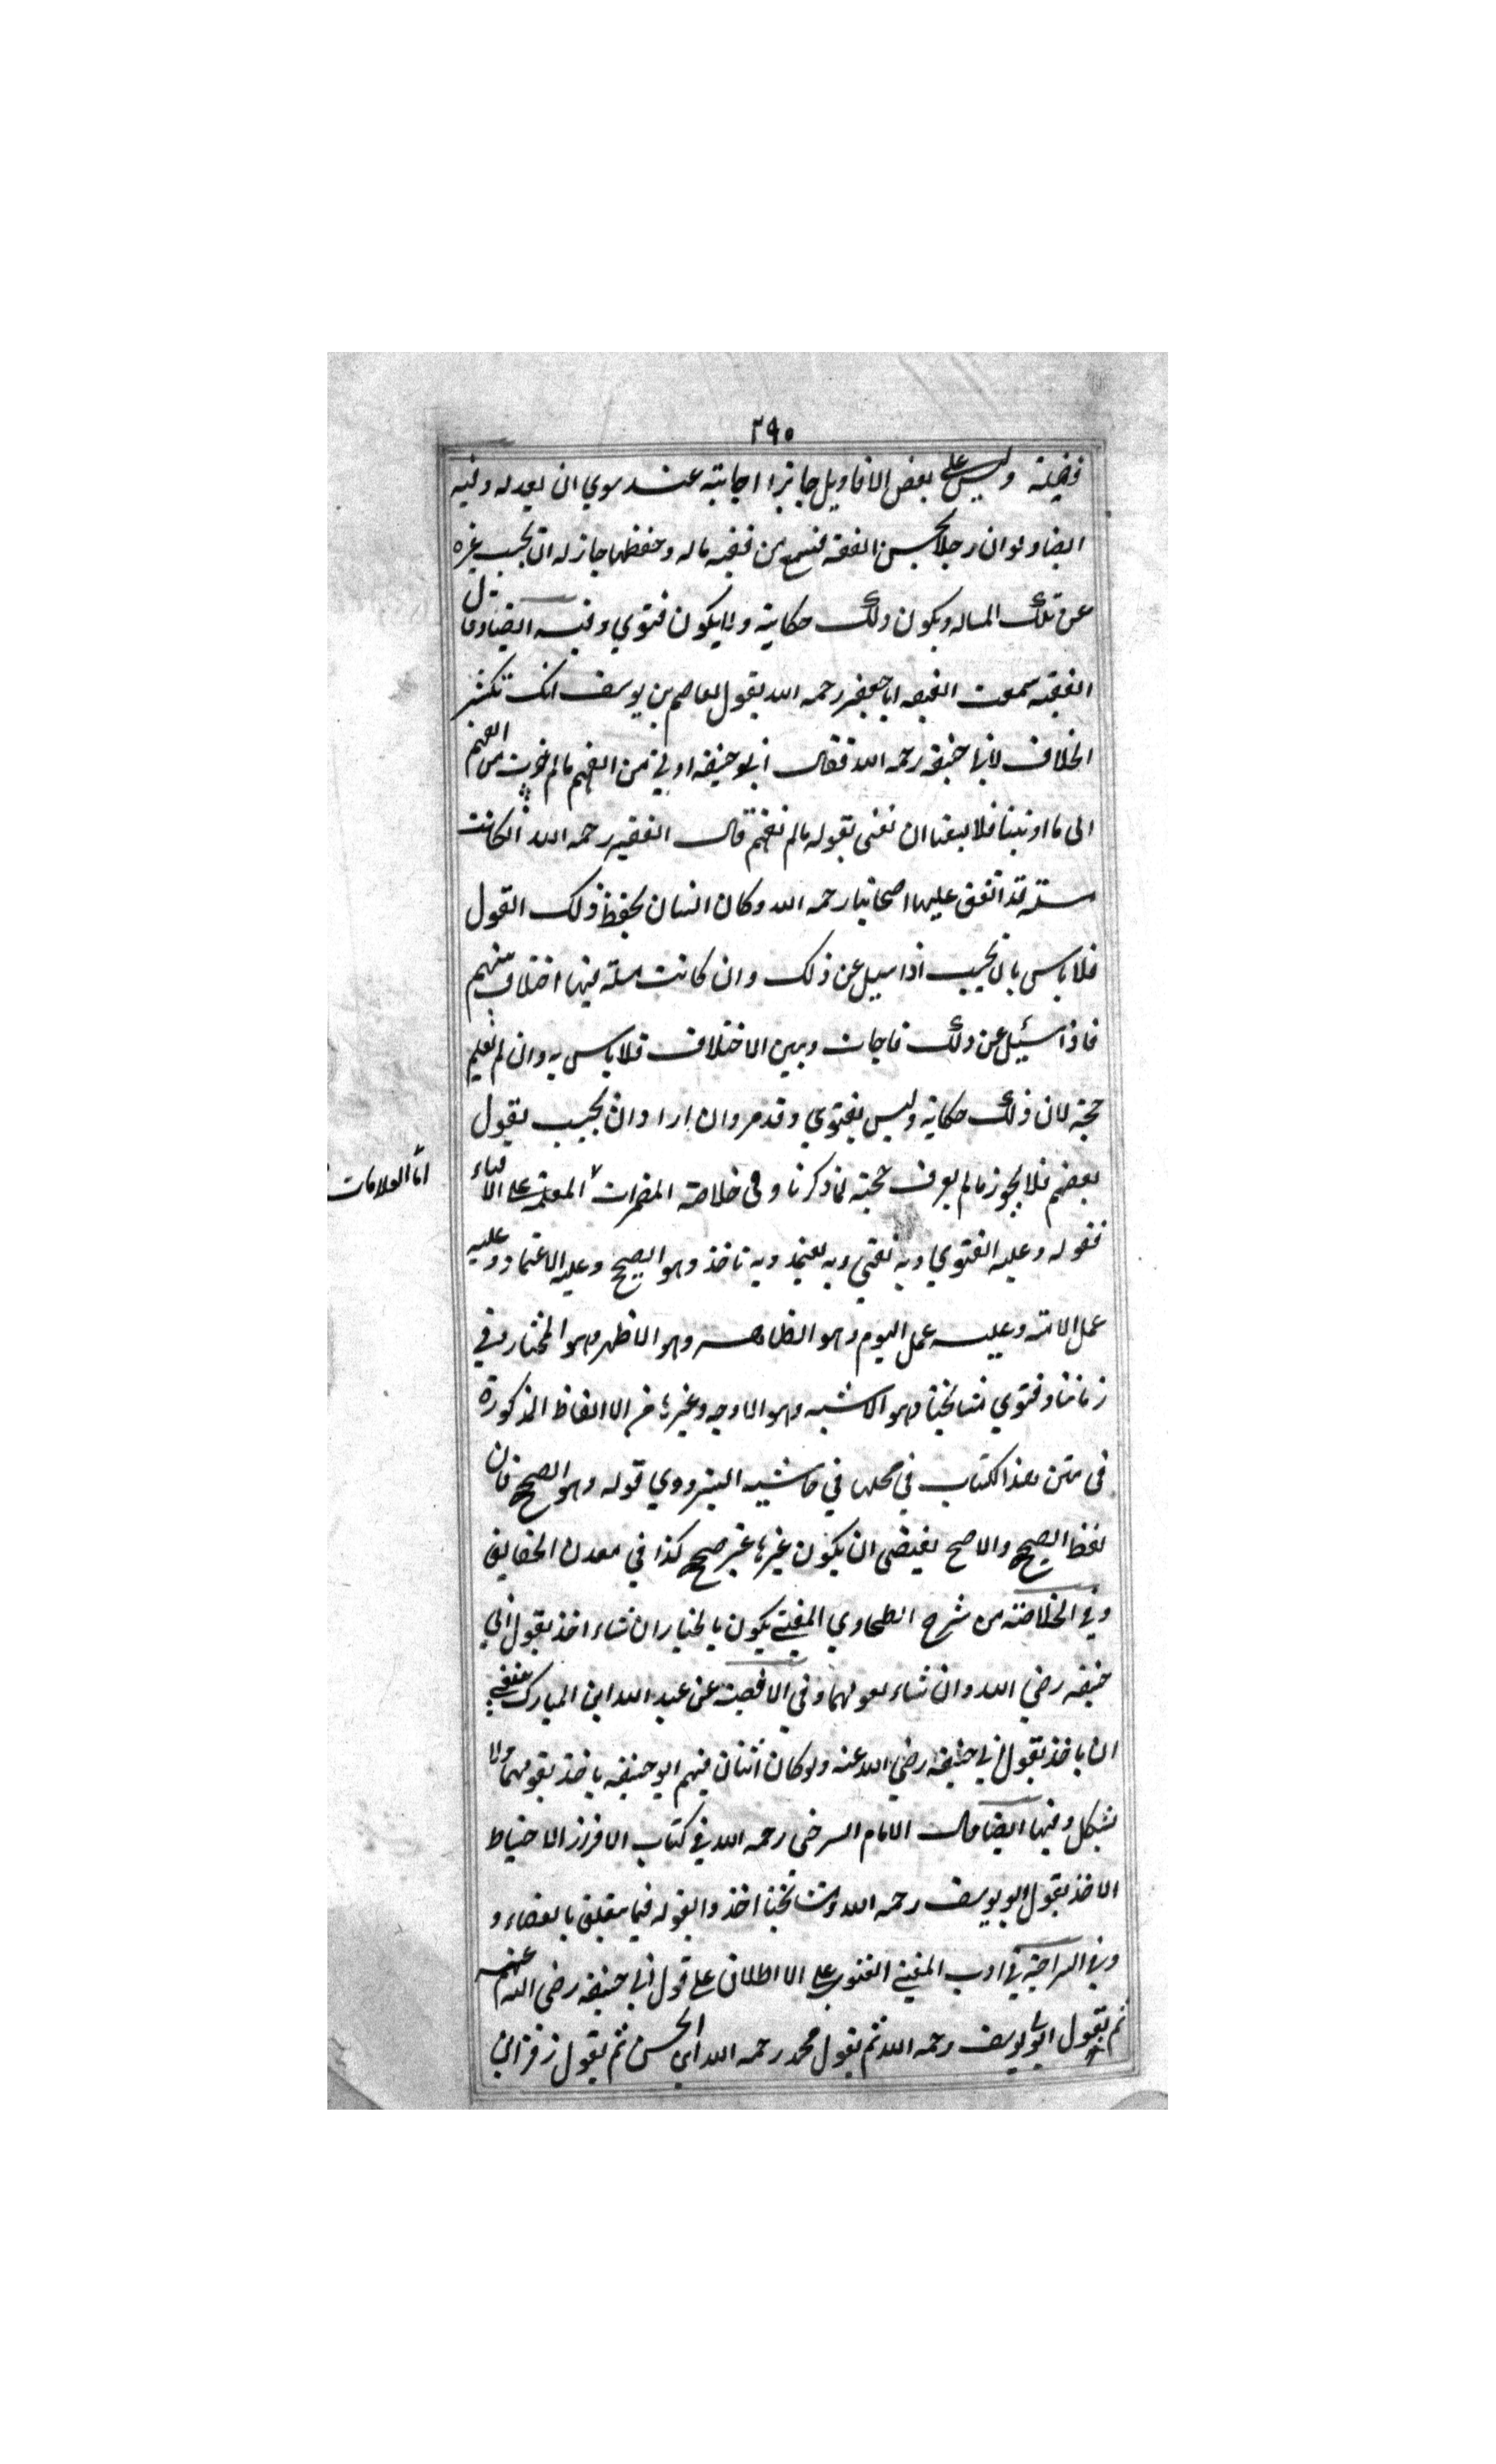 ٢٩٠
فضيلة وليس على بعض الاقاويل جائزا اجابته عند سوي ان يعدله وفيه
ايضا ولو ان رجلا يحسن الفقه فسمع من فقيه ماله وحفظها جاز له ان يجيب غيره
عن تلك المساله ويكون ذلك حكاية ولا يكون فتوي وفيه ايضا وقال
الفقيه سمعت الفقيه ابا جعفر رحمه الله يقول لعاصم بن يوسف انك تكثر
الخلاف لابي حنيفه رحمه الله فقال ابو حنيفه اوتي من الفهم مالم نوت من الفهم
الى ما اوتينا فلا يسعنا ان نفتى بقوله مالم نفهم قال الفقيه رحمه الله ان كانت
مسئلة قد اتفق عليها اصحابنا رحمه الله وكان انسان يحفظ ذلك القول
فلا باس بان يجيب اذا سيل عن ذلك وان كانت مسئلة فيها اختلاف منهم
فاذا سئيل عن ذلك فاجاب وبين الاختلاف فلا باس به وان لم يعلم
حجته لان ذلك حكاية وليس بفتوي وقد مر وان اراد ان يجيب بقول
بعضهم فلا يجوز مالم يعرف حجته لما ذكرنا وفى خلاصة المضمرات المعلمة على الافتاء
اما العلامات
فقوله وعليه الفتوي وبه نفتي وبه يعتمد وبه ناخذ وهو الصحيح وعليه الاعتماد وعليه
عمل الامة وعليه عمل اليوم وهو الظاهر وهو الاظهر وهو المختار في
زماننا وفتوي مشايخنا وهو الاشبه وهو الاوجه وغيرها من الالفاظ المذكورة
فى متن هذا الكتاب في محلها في حاشيه البزدوي قوله وهو الصحيح فان
لفظ الصحيح والاصح يقتضى ان يكون غيرها غير صحيح كذا في معدن الحقايق
وفي الخلاصة من شرح الطحاوي المفتي يكون بالخيار ان شاء اخذ بقول ابي
حنيفه رضي الله وان شاء بقولهما وفي الاقضية عن عبد الله ابن المبارك
ان ياخذ بقول ابي حنيفة رضي الله عنه ولو كان اثنان فيهم ابو حنيفه ياخذ بقولهما ولا
يشكل وفيها ايضا قال الامام السرخسى رحمه الله في كتاب الاقرار الاحتياط
الاخذ بقول ابو يوسف رحمه الله ومشايخنا اخذوا بقوله فيما يتعلق بالقضاء و
وفي السراجية في ادب المفتي الفتوي على الاطلاق على قول ابي حنيفة رضى الله عنهم
ثم بقول ابو يوسف رحمه الله ثم بقول محمد رحمه الله ابن الحسن ثم بقول زفر ابن